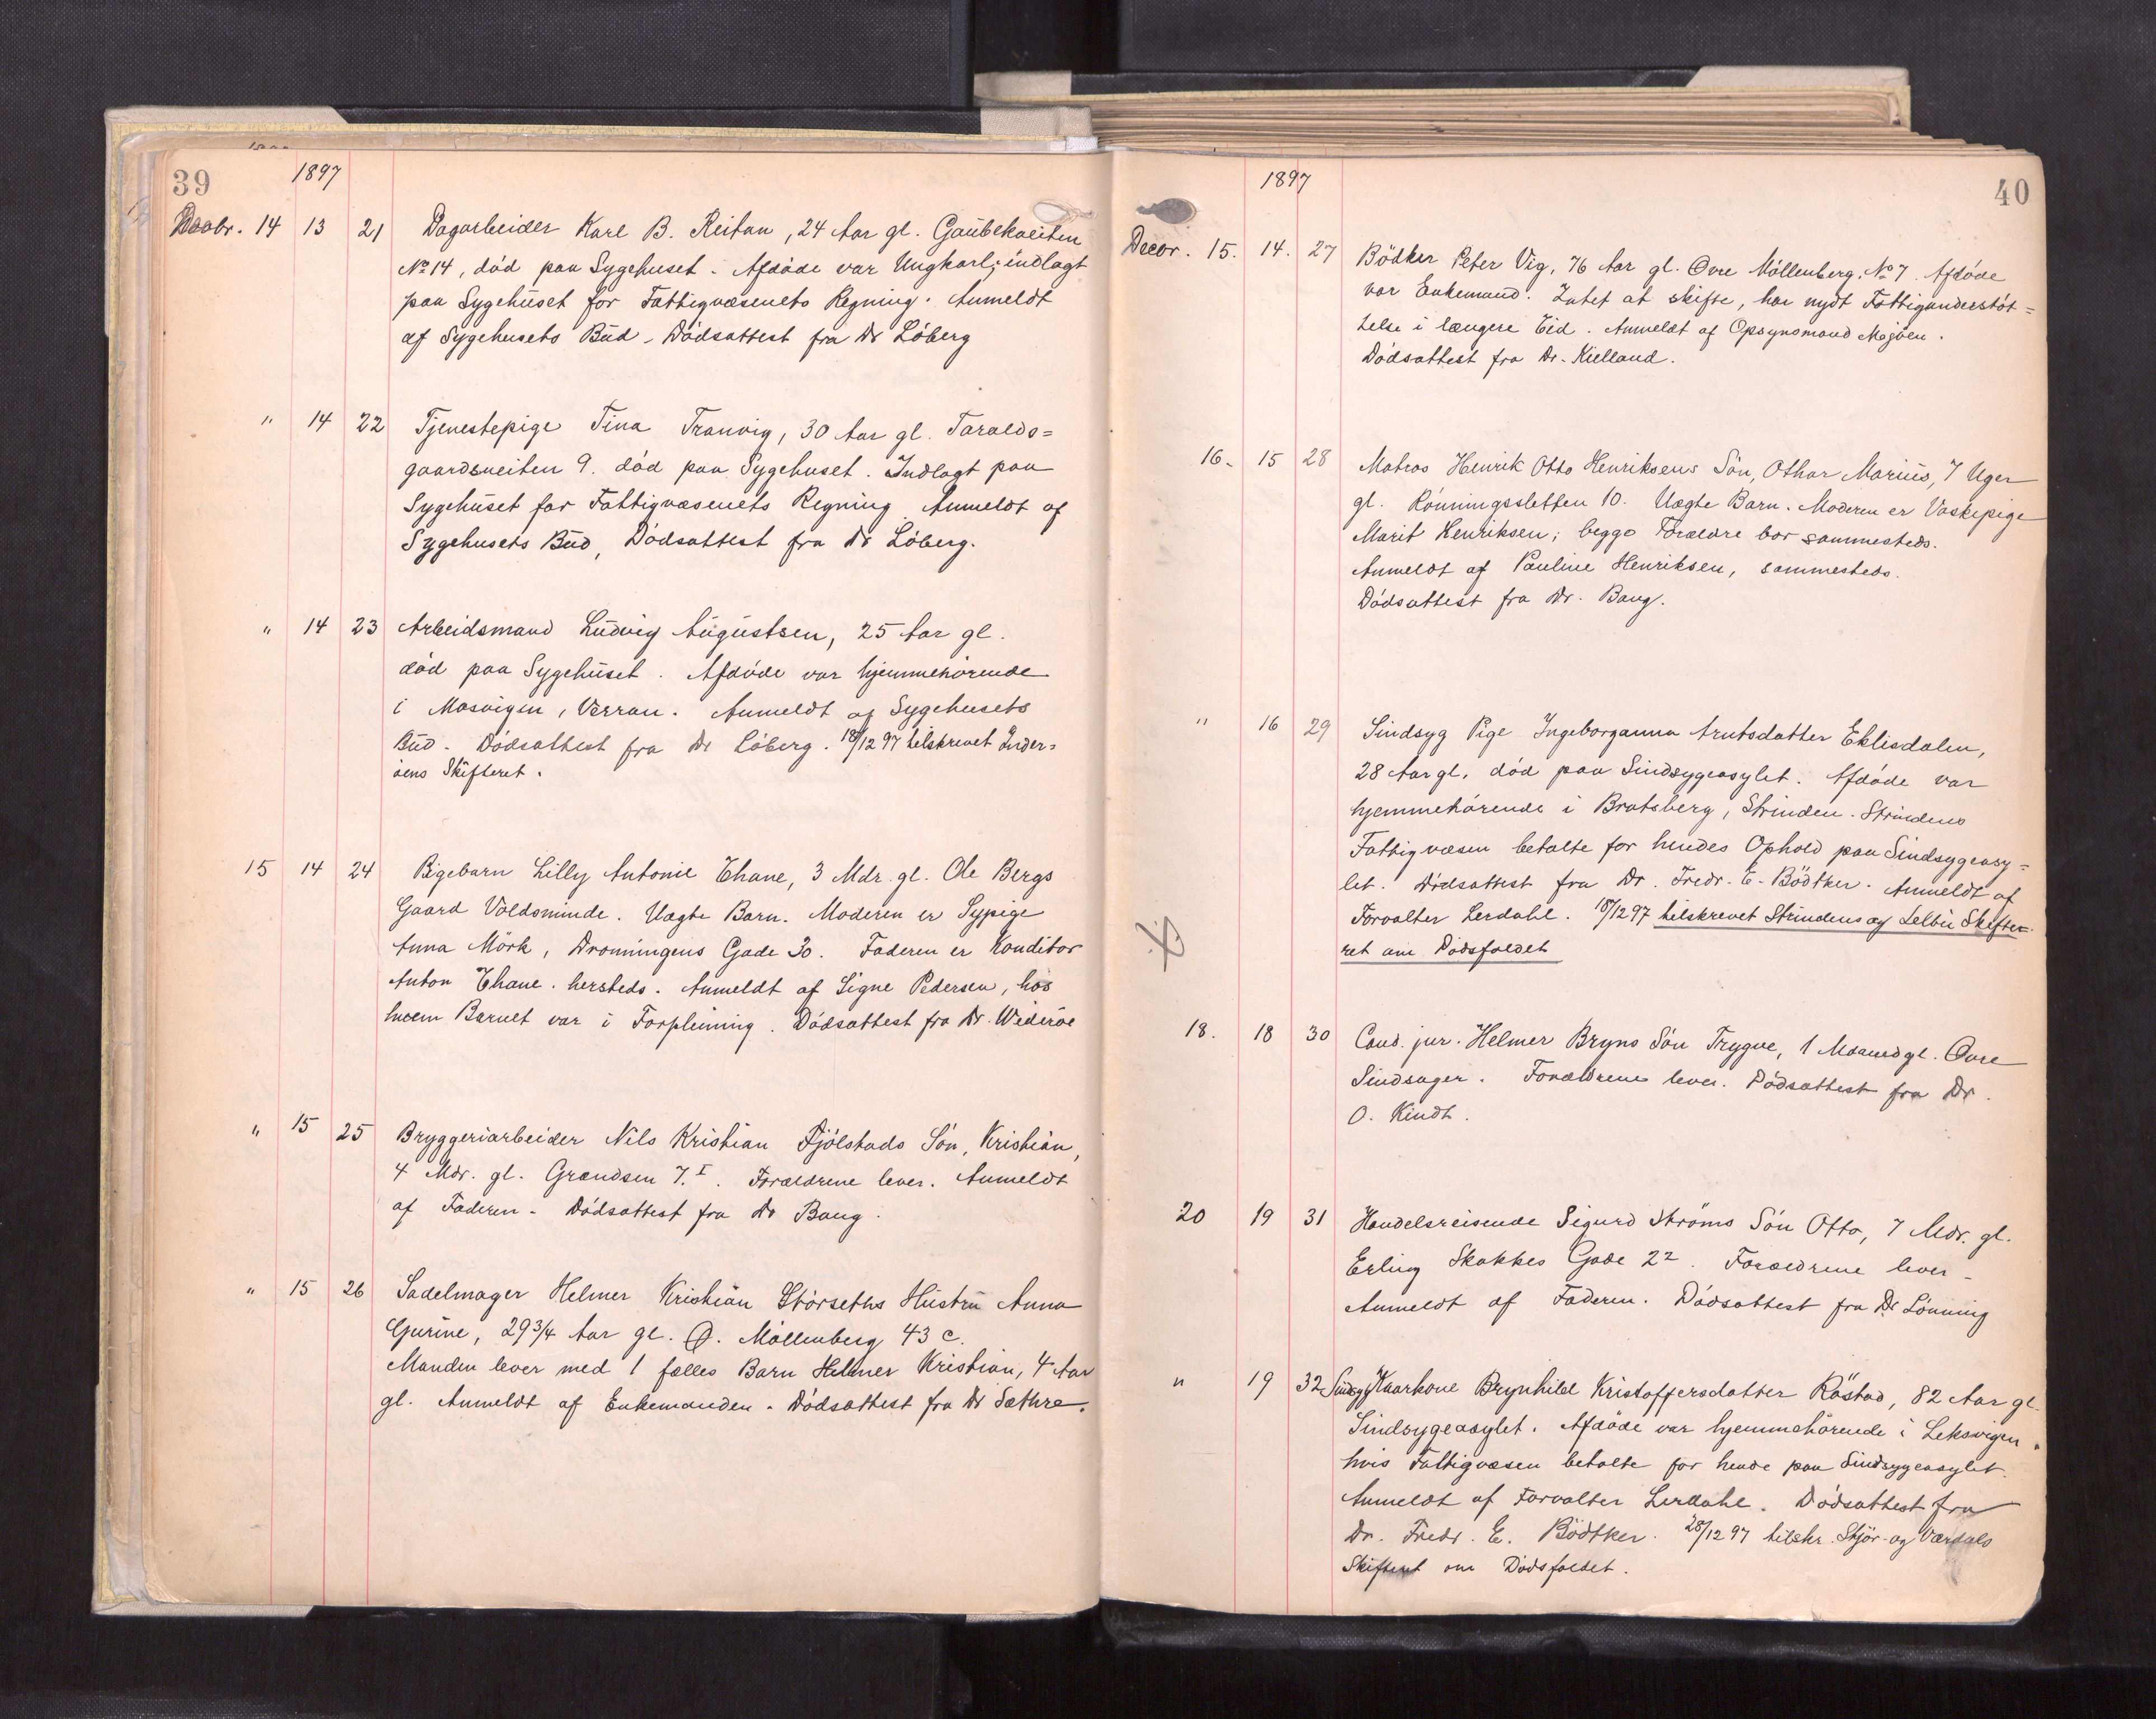 39
1897
Decbr. 14 13 21 Dagarbeider Karl B. Reitan, 24 Aar gl. Gaubekveiten
No 14, död paa Sygehuset. Afdöde var Ungkarl; indlagt
paa Sygehuset for Fattigvæsenets Regning. Anmeldt
af Sygehusets Bud. Dödsattest fra Dr Löberg
" 14 22 Tjenestepige Tina Tranvig, 30 Aar gl. Taralds=
gaardsveiten 9. död paa Sygehuset. Indlagt paa
Sygehuset for Fattigvæsenets Regning. Anmeldt af
Sygehusets Bud, Dödsattest fra Dr Löberg.
" 14 23 Arbeidsmand Ludvig Augustsen, 25 Aar gl.
död paa Sygehuset. Afdöde var hjemmehörende
i Mosvigen, Verran. Anmeldt af Sygehusets
Bud. Dödsattest fra Dr Löberg. 18/12 97 tilskrevet Inder=
öens Skifteret.
15 14 24 Pigebarn Lilly Antonie Thane, 3 Mdr. gl. Ole Bergs
Gaard Voldsminde. Uægte Barn. Moderen er Sypige
Anna Mörk, Dronningens Gade 30. Faderen er Konditor
Anton Thane. hersteds. Anmeldt af Signe Pedersen, hos
hvem Barnet var i Forpleining. Dödsattest fra Dr. Wideröe
" 15 25 Bryggeriarbeider Nils Kristian Fjölstads Sön, Kristian,
4 Mdr. gl. Grændsen 7.I. Forældrene lever. Anmeldt
af Faderen. Dödsattest fra Dr Bang.
" 15 26 Sadelmager Helmer Kristian Störseths Hustru Anna
Gurine, 29 3/4 Aar gl. Ø. Möllenberg 43 c.
Manden lever med 1 fælles Barn Helmer Kristian, 4 Aar
gl. Anmeldt af Enkemanden. Dödsattest fra Dr Sæthre.
1897
40
Decbr. 15. 14. 27 Bödker Peter Vig, 76 Aar gl. Øvre Möllenberg No 7. Afdöde
var Enkemand. Intet at skifte, har nydt Fattigunderstöt=
telse i længere Tid. Anmeldt af Opsynsmand Mojöen.
Dödsattest fra Dr. Kielland.
16. 15 28 Matros Henrik Otto Henriksens Sön, Othar Marius, 7 Uger
gl. Rönningsletten 10. Uægte Barn. Moderen er Vaskepige
Marit Henriksen; begge Forældre bor sammesteds.
Anmeldt af Pauline Henriksen, sammesteds.
Dödsattest fra Dr. Bang.
" 16 29 Sindsyg Pige Ingeborganna Arntsdatter Eklisdalen,
28 Aar gl. död paa Sindsygeasylet. Afdöde var
hjemmehörende i Bratsberg, Strinden. Strindens
Fattigvæsen betalte for hendes Ophold paa Sindsygeasy=
let. Dödsattest fra Dr. Fredr. E. Bödtker. Anmeldt af
Forvalter Lerdahl. 18/12 97 tilskrevet Strindens og Selbu Skifte-
ret om Dödsfaldet
18. 18 30 Cand. jur. Helmer Bryns Sön Trygve, 1 Maaned gl. Øvre
Sindsager. Forældrene lever. Dödsattest fra Dr.
O. Kindt.
20 19 31 Handelsreisende Sigurd Ströms Sön Otto, 7 Mdr. gl.
Erling Skakkes Gade 22. Forældrene lever.
Anmeldt af Faderen. Dödsattest fra Dr Lönning
" 19 32 Sindsyg Kaarkone Brynhild Kristoffersdatter Röstad, 82 Aar gl.
Sindsygeasylet. Afdöde var hjemmehörende i Leksvigen,
hvis Fattigvæsen betalte for hende paa Sindsygeasylet.
Anmeldt af Forvalter Lerdahl. Dödsattest fra
Dr. Fredr. E. Bödtker. 28/12 97 tilskr. Stjör- og Værdals
Skifteret om Dödsfaldet.